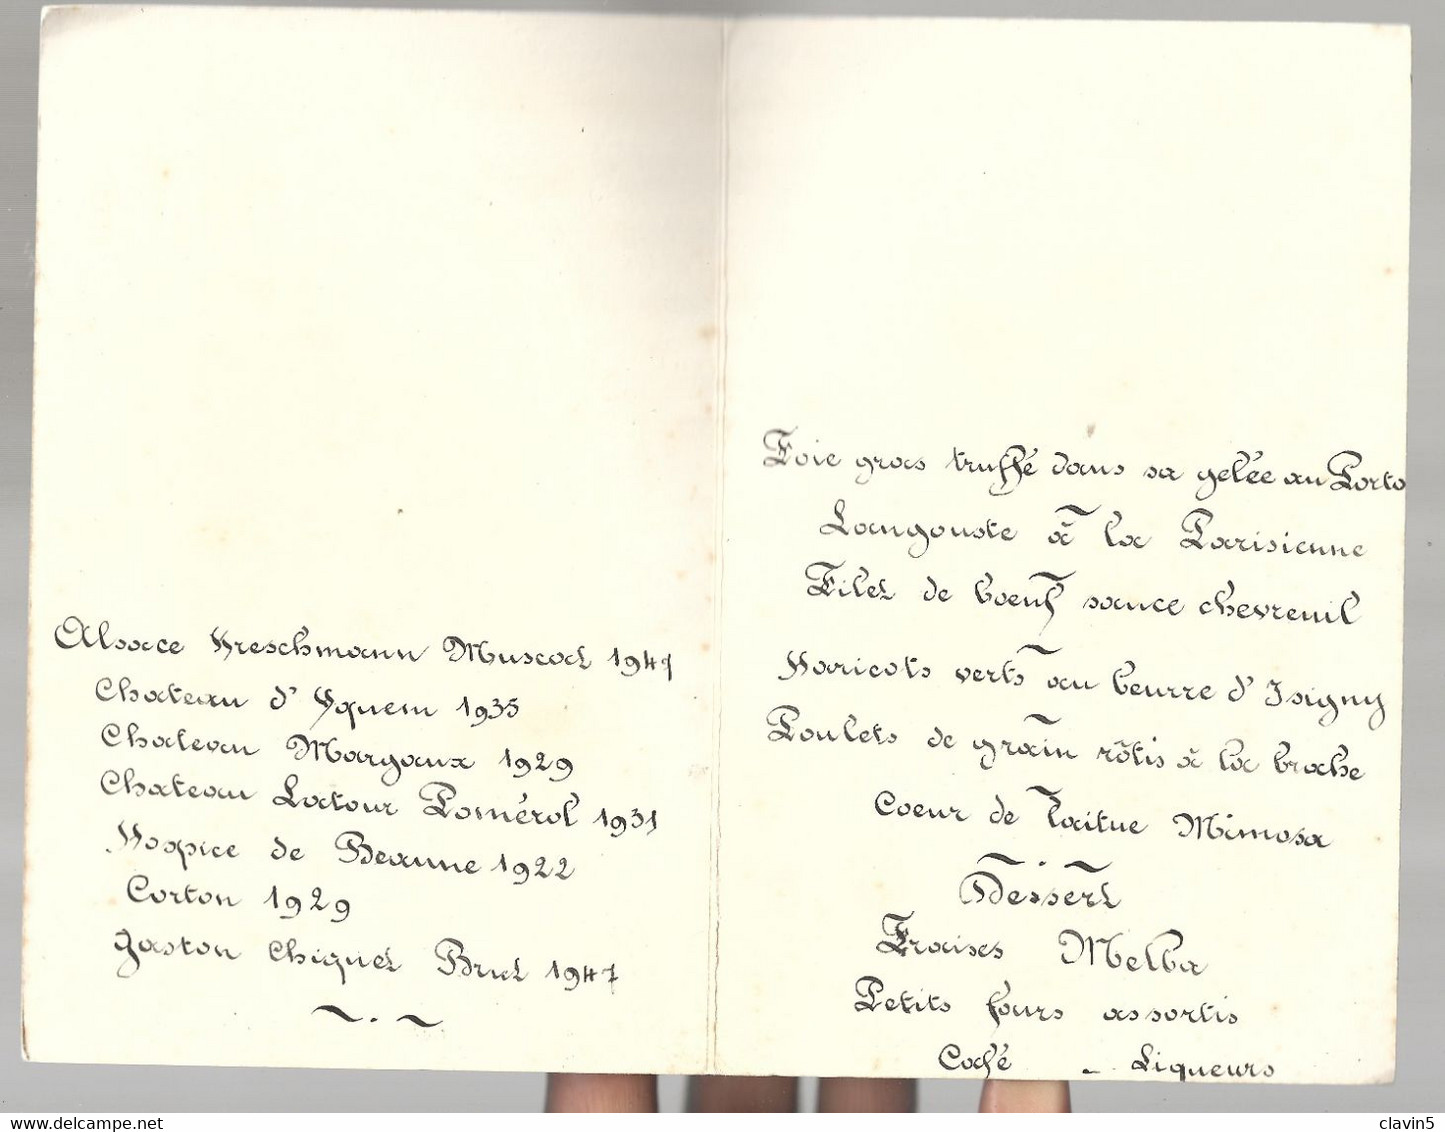 Alsace Kreschmann Muscat 1947
Chateau d'Yquem 1935
Chateau Margaux 1929
Chateau Latour Pomérol 1931
Hospice de Beaune 1922
Corton 1929
Gaston Chiquet Brut 1947
Foie gras truffé dans sa gelée au Porto
Langouste à la Parisienne
Filet de boeuf sauce chevreuil
Haricots verts au beurre d'Isigny
Poulets de grain rôtis à la broche
Coeur de laitue Mimosa
Dessert
Fraises Melba
Petits fours assortis
Café - Liqueurs
www.delcampe.net
clavin5